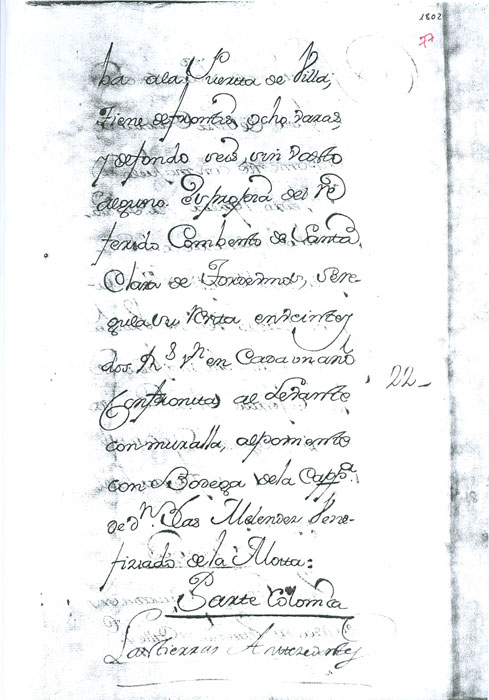 1802
77
ba a la Puerta de Villa,
tiene defrontis ocho varas,
y defondo seis, sin Pasto
alguno. Es propia del Re
ferido Combento de Santa
Clara de Tordesillas, se re-
gula su Renta en veinte y
dos R.s v.n en cada un año
Confronta al Levante
con muralla, al poniente
con Bodega de la Capp.a
de d.n Blas Melendez Bene-
fiziado de la Mota:
22_
Parte Colomba
Las tierras Antezedentes